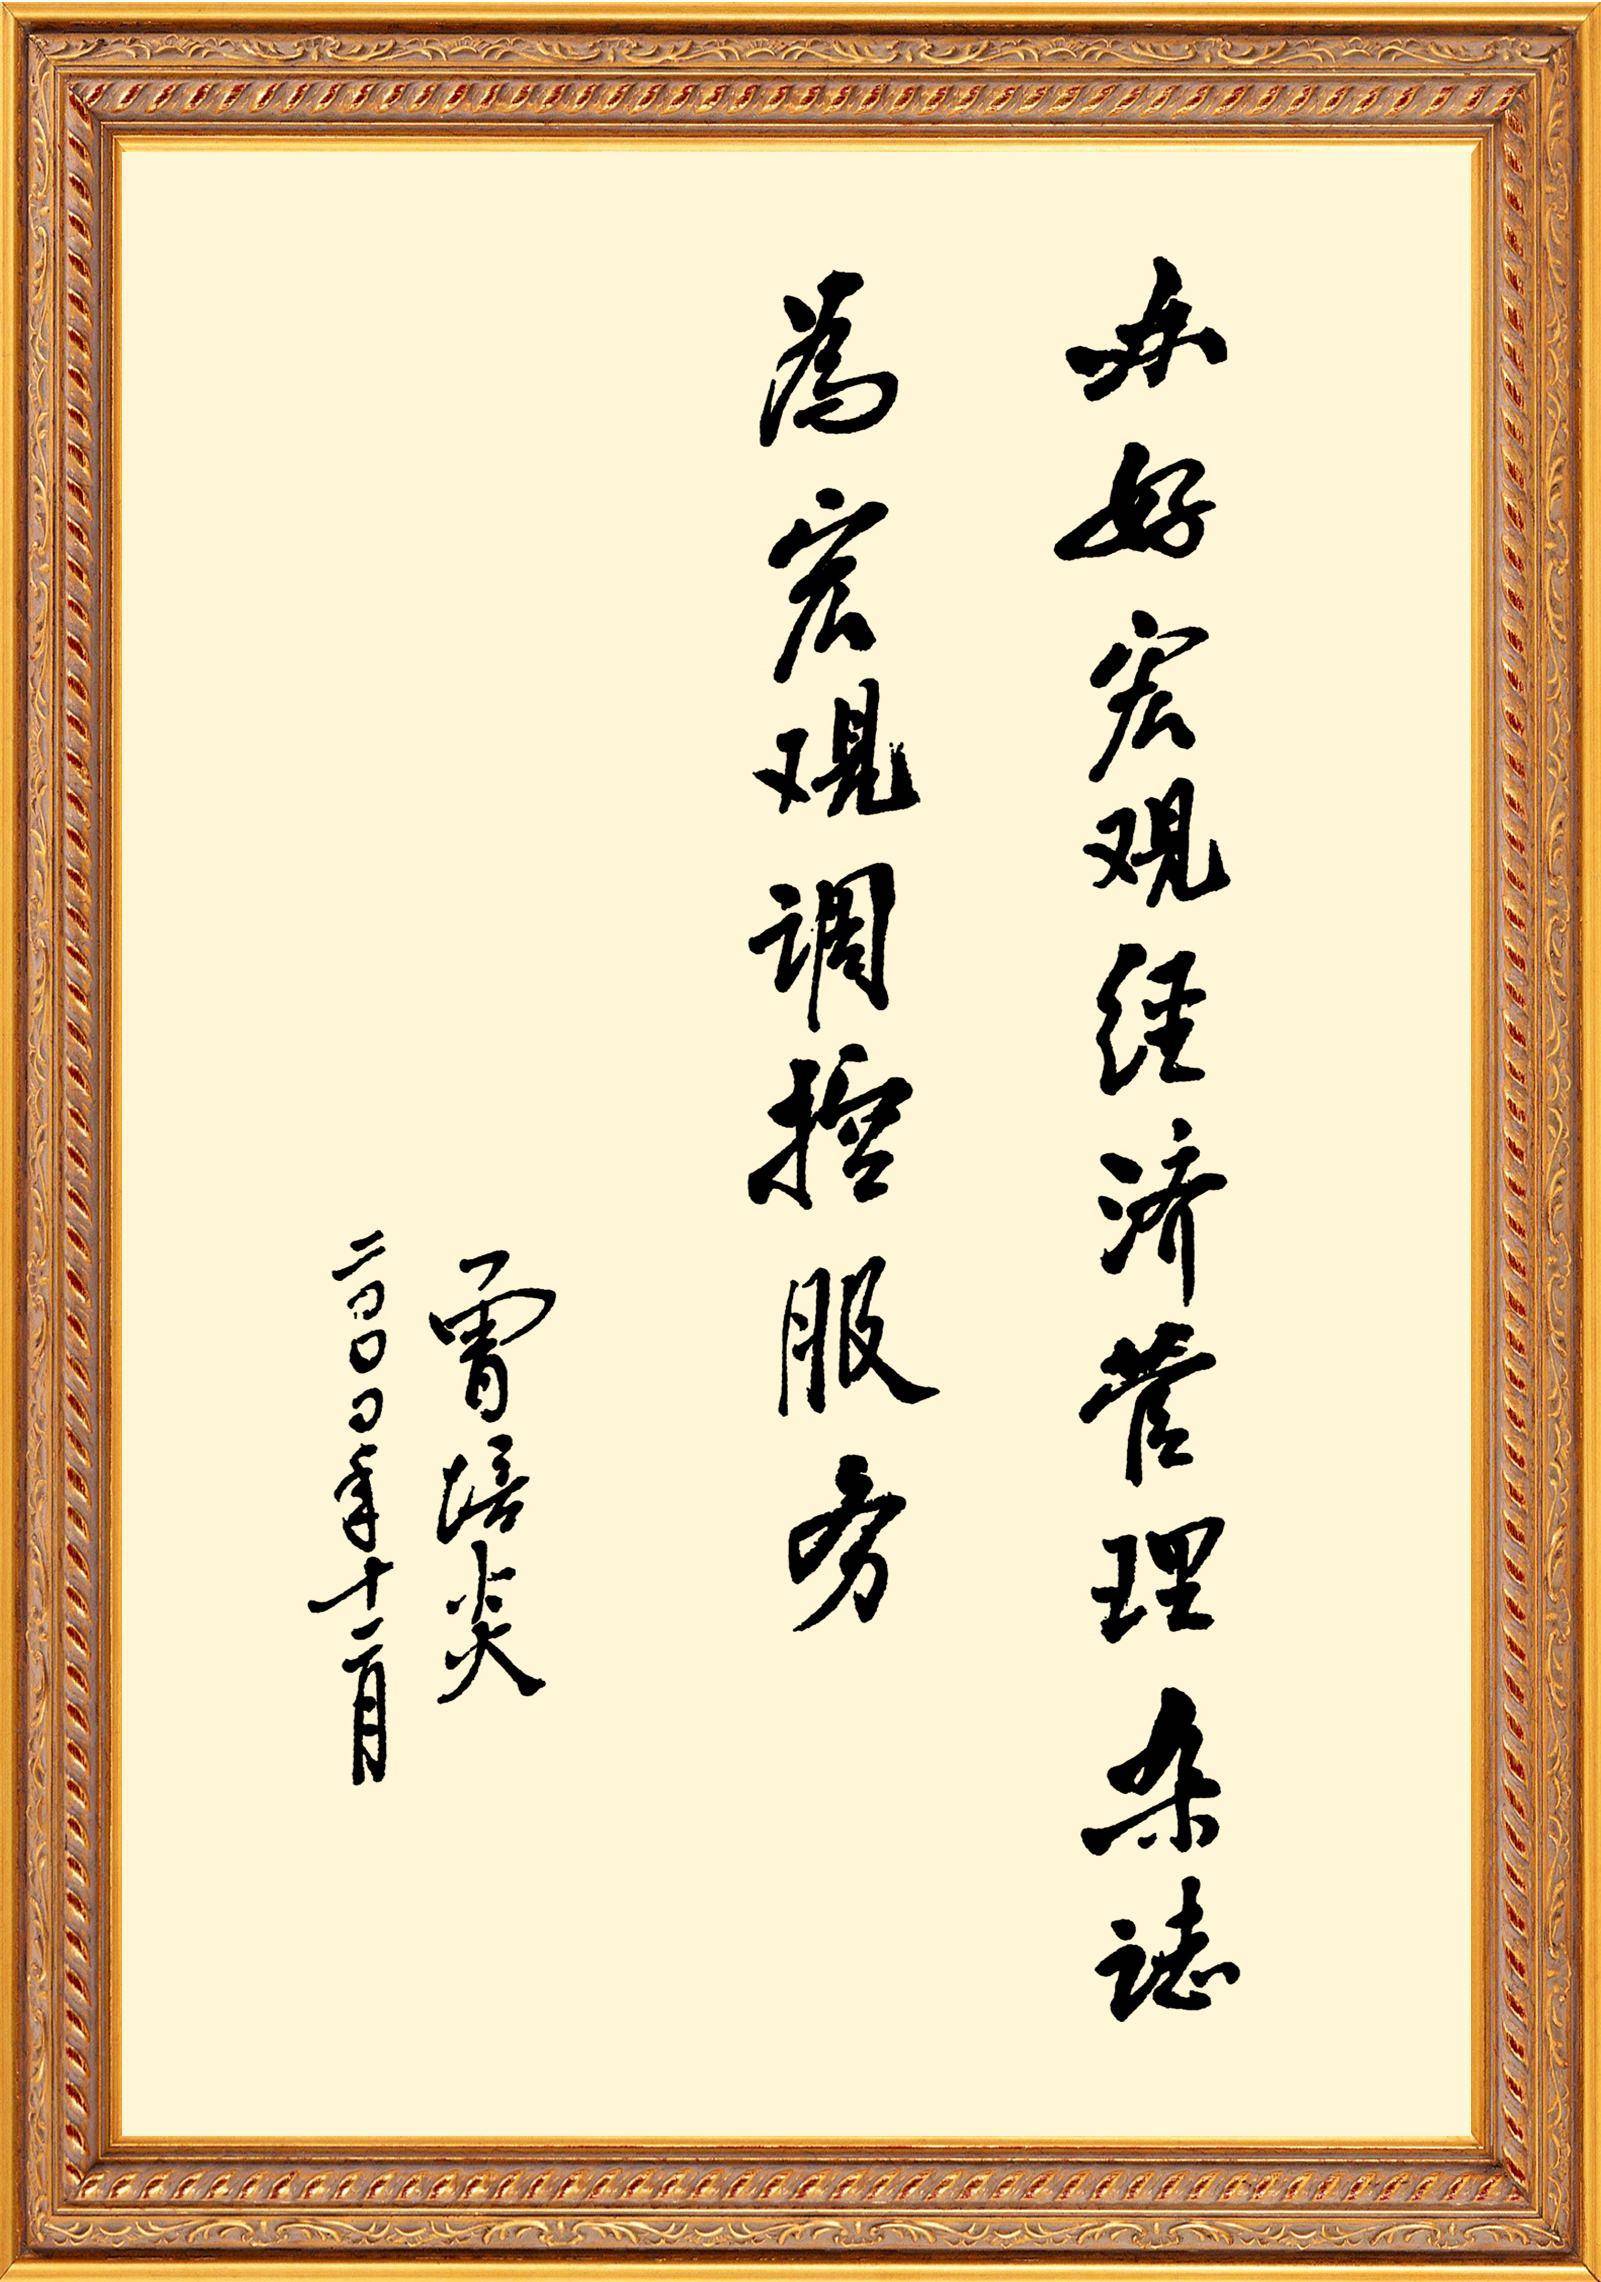 办好宏观经济管理杂誌
為宏观调控服务
曾培炎
二〇〇〇年十二月